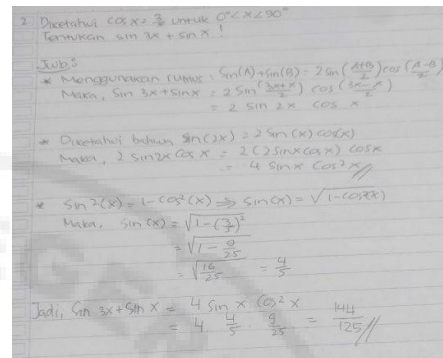 2 Diketahui cos x = 3/5 untuk 0° < x < 90°
Tentukan sin 3x + sin x !
Jwb :
* Menggunakan rumus, Sin(A)+Sin(B) = 2 Sin (A+B/2) cos (A-B/2)
Maka, Sin 3x + Sin x = 2 Sin (3x+x/2) cos (3x-x/2)
= 2 Sin 2x cos x
* Diketahui bahwa Sin(2x) = 2 Sin(x) cos(x)
Maka, 2 Sin 2x cos x = 2 (2 Sin x cos x) cos x
= 4 Sin x cos² x //
* Sin²(x) = 1 - cos²(x) ⇒ Sin(x) = √1-cos²(x)
Maka, Sin(x) = √1-(3/5)²
= √1 - 9/25
= √16/25 = 4/5
Jadi, Sin 3x + Sin x = 4 Sin x cos² x
= 4 4/5 . 9/25 = 144/125 //